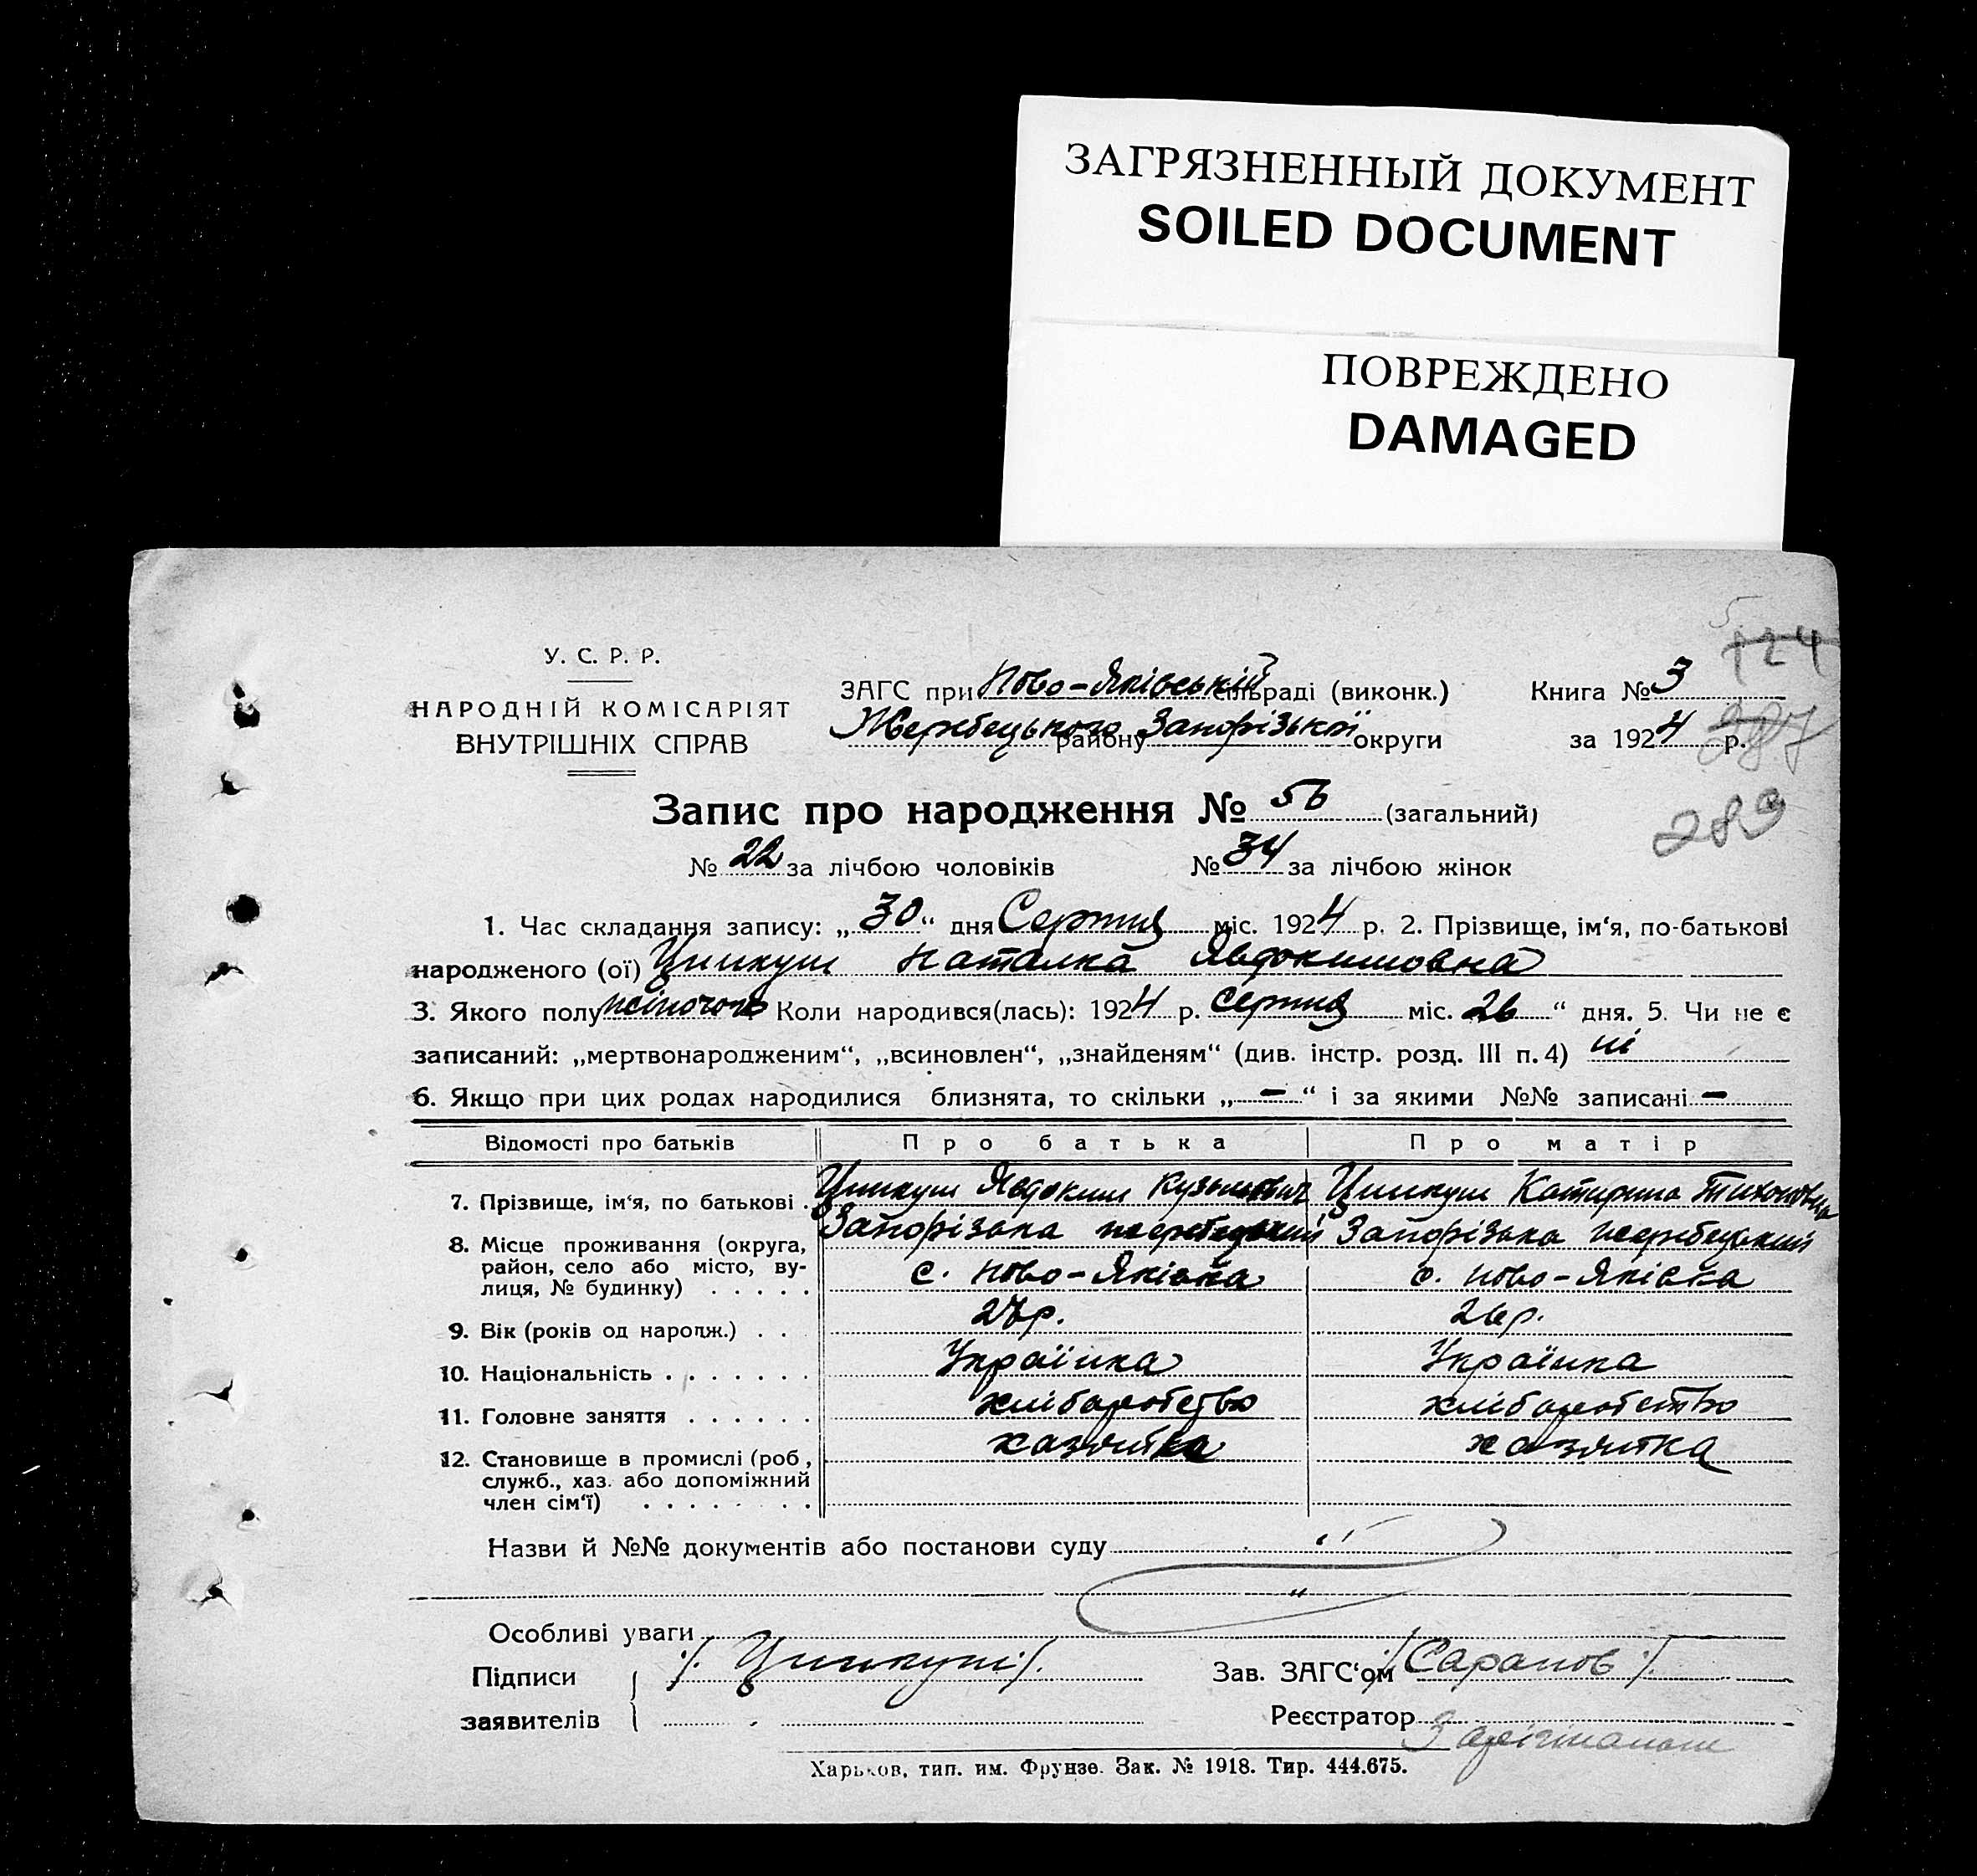 ЗАГРЯЗНЕННЫЙ ДОКУМЕНТ
SOILED DOCUMENT
ПОВРЕЖДЕНО
DAMAGED
5
124
У. С. Р. Р.
НАРОДНІЙ КОМІСАРІЯТ
ВНУТРІШНІХ СПРАВ
ЗАГС при Ново-Яківській сільраді (виконк.) Книга № 3
Жеребецького району Запорізької округи за 1924 р.
287
Запис про народження № 56 (загальний)
289
№ 22 за лічбою чоловіків № 34 за лічбою жінок
1. Час складання запису: „30“ дня Серпня міс. 1924 р. 2. Прізвище, ім‘я, по-батькові
народженого (ої) Цимкуш Наталка Явдокимовна
3. Якого полу жіночого Коли народився(лась): 1924 р. Серпня міс. 26 “ дня. 5. Чи не є
записаний: „мертвонародженим“, „всиновлен“, „знайденям“ (див. інстр. розд. III п. 4) ні
6. Якщо при цих родах народилися близнята, то скільки „ — “ і за якими №№ записані —
Відомості про батьків Про батька Про матір
7. Прізвище, ім‘я, по батькові . Цимкуш Явдоким Кузьмович Цимкуш Катирина Тихоновна
8. Місце проживання (округа, район, село або місто, ву-лиця, № будинку) . . . . . Запорізька жеребецький Запорізька жеребецький
с. Ново-Яківка с. Ново-Яківка
9. Вік (років од народж.) . . 27р. 26р.
10. Національність . . . . . . . Українка Українка
11. Головне заняття . . . . . . хліборобство хліборобство
12. Становище в промислі (роб., служб., хаз. або допоміжний член сім‘ї) . . . . . . . хазяйка хазяйка
Назви й №№ документів або постанови суду
Особливі уваги
Підписи /. Цимкуш /. Зав. ЗАГС‘ом /. Сарапов /.
заявителів Реєстратор
З орігіналом
Харьков, тип. им. Фрунзе. Зак. № 1918. Тир. 444.675.